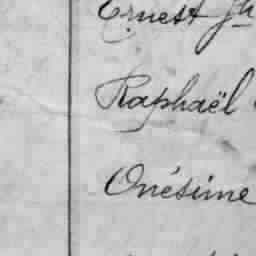 Ernest Jh
Raphaël
Onésime